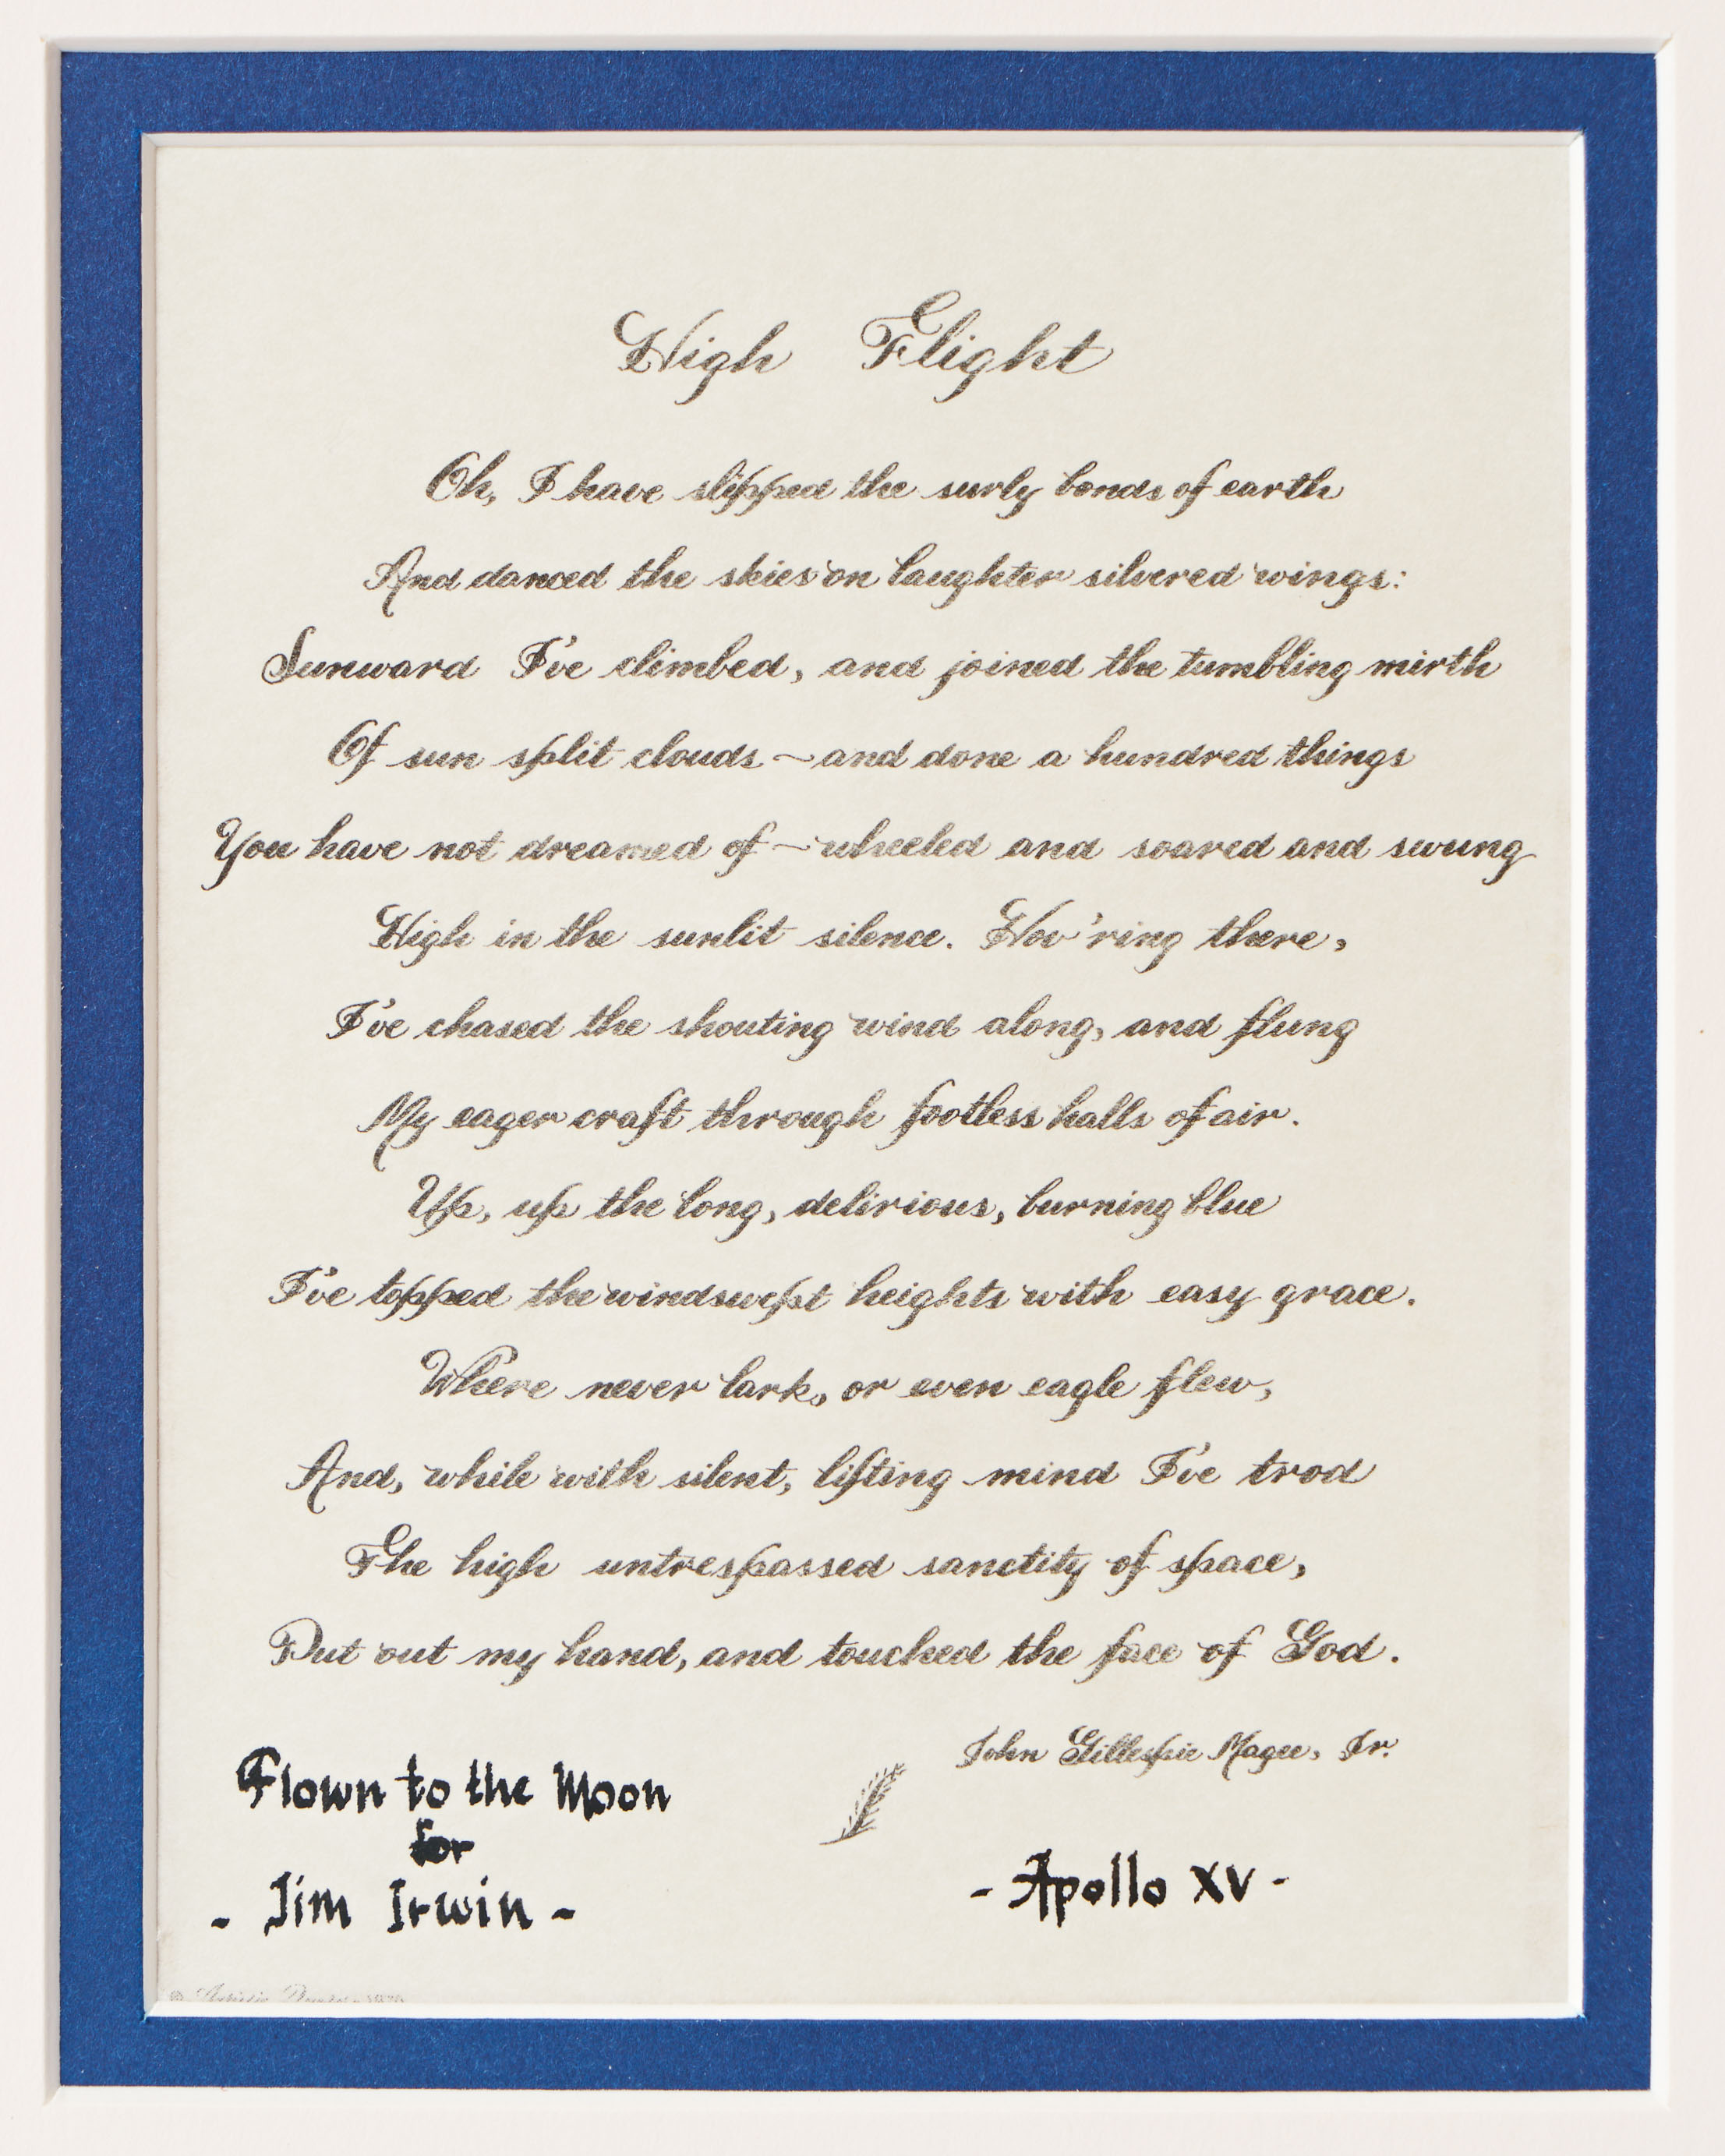 High Flight
Oh, I have slipped the surly bonds of earth
And danced the skies on laughter silvered wings:
Sunward I've climbed, and joined the tumbling mirth
Of sun split clouds – and done a hundred things
You have not dreamed of – wheeled and soared and swung
High in the sunlit silence. Hov'ring there,
I've chased the shouting wind along, and flung
My eager craft through footless halls of air.
Up, up the long, delirious, burning blue
I've topped the windswept heights with easy grace.
Where never lark, or even eagle flew,
And, while with silent, lifting mind I've trod
The high untrespassed sanctity of space,
Put out my hand, and touched the face of God.
John Gillespie Magee, Jr.
Flown to the Moon
for
- Jim Irwin -
- Apollo XV -